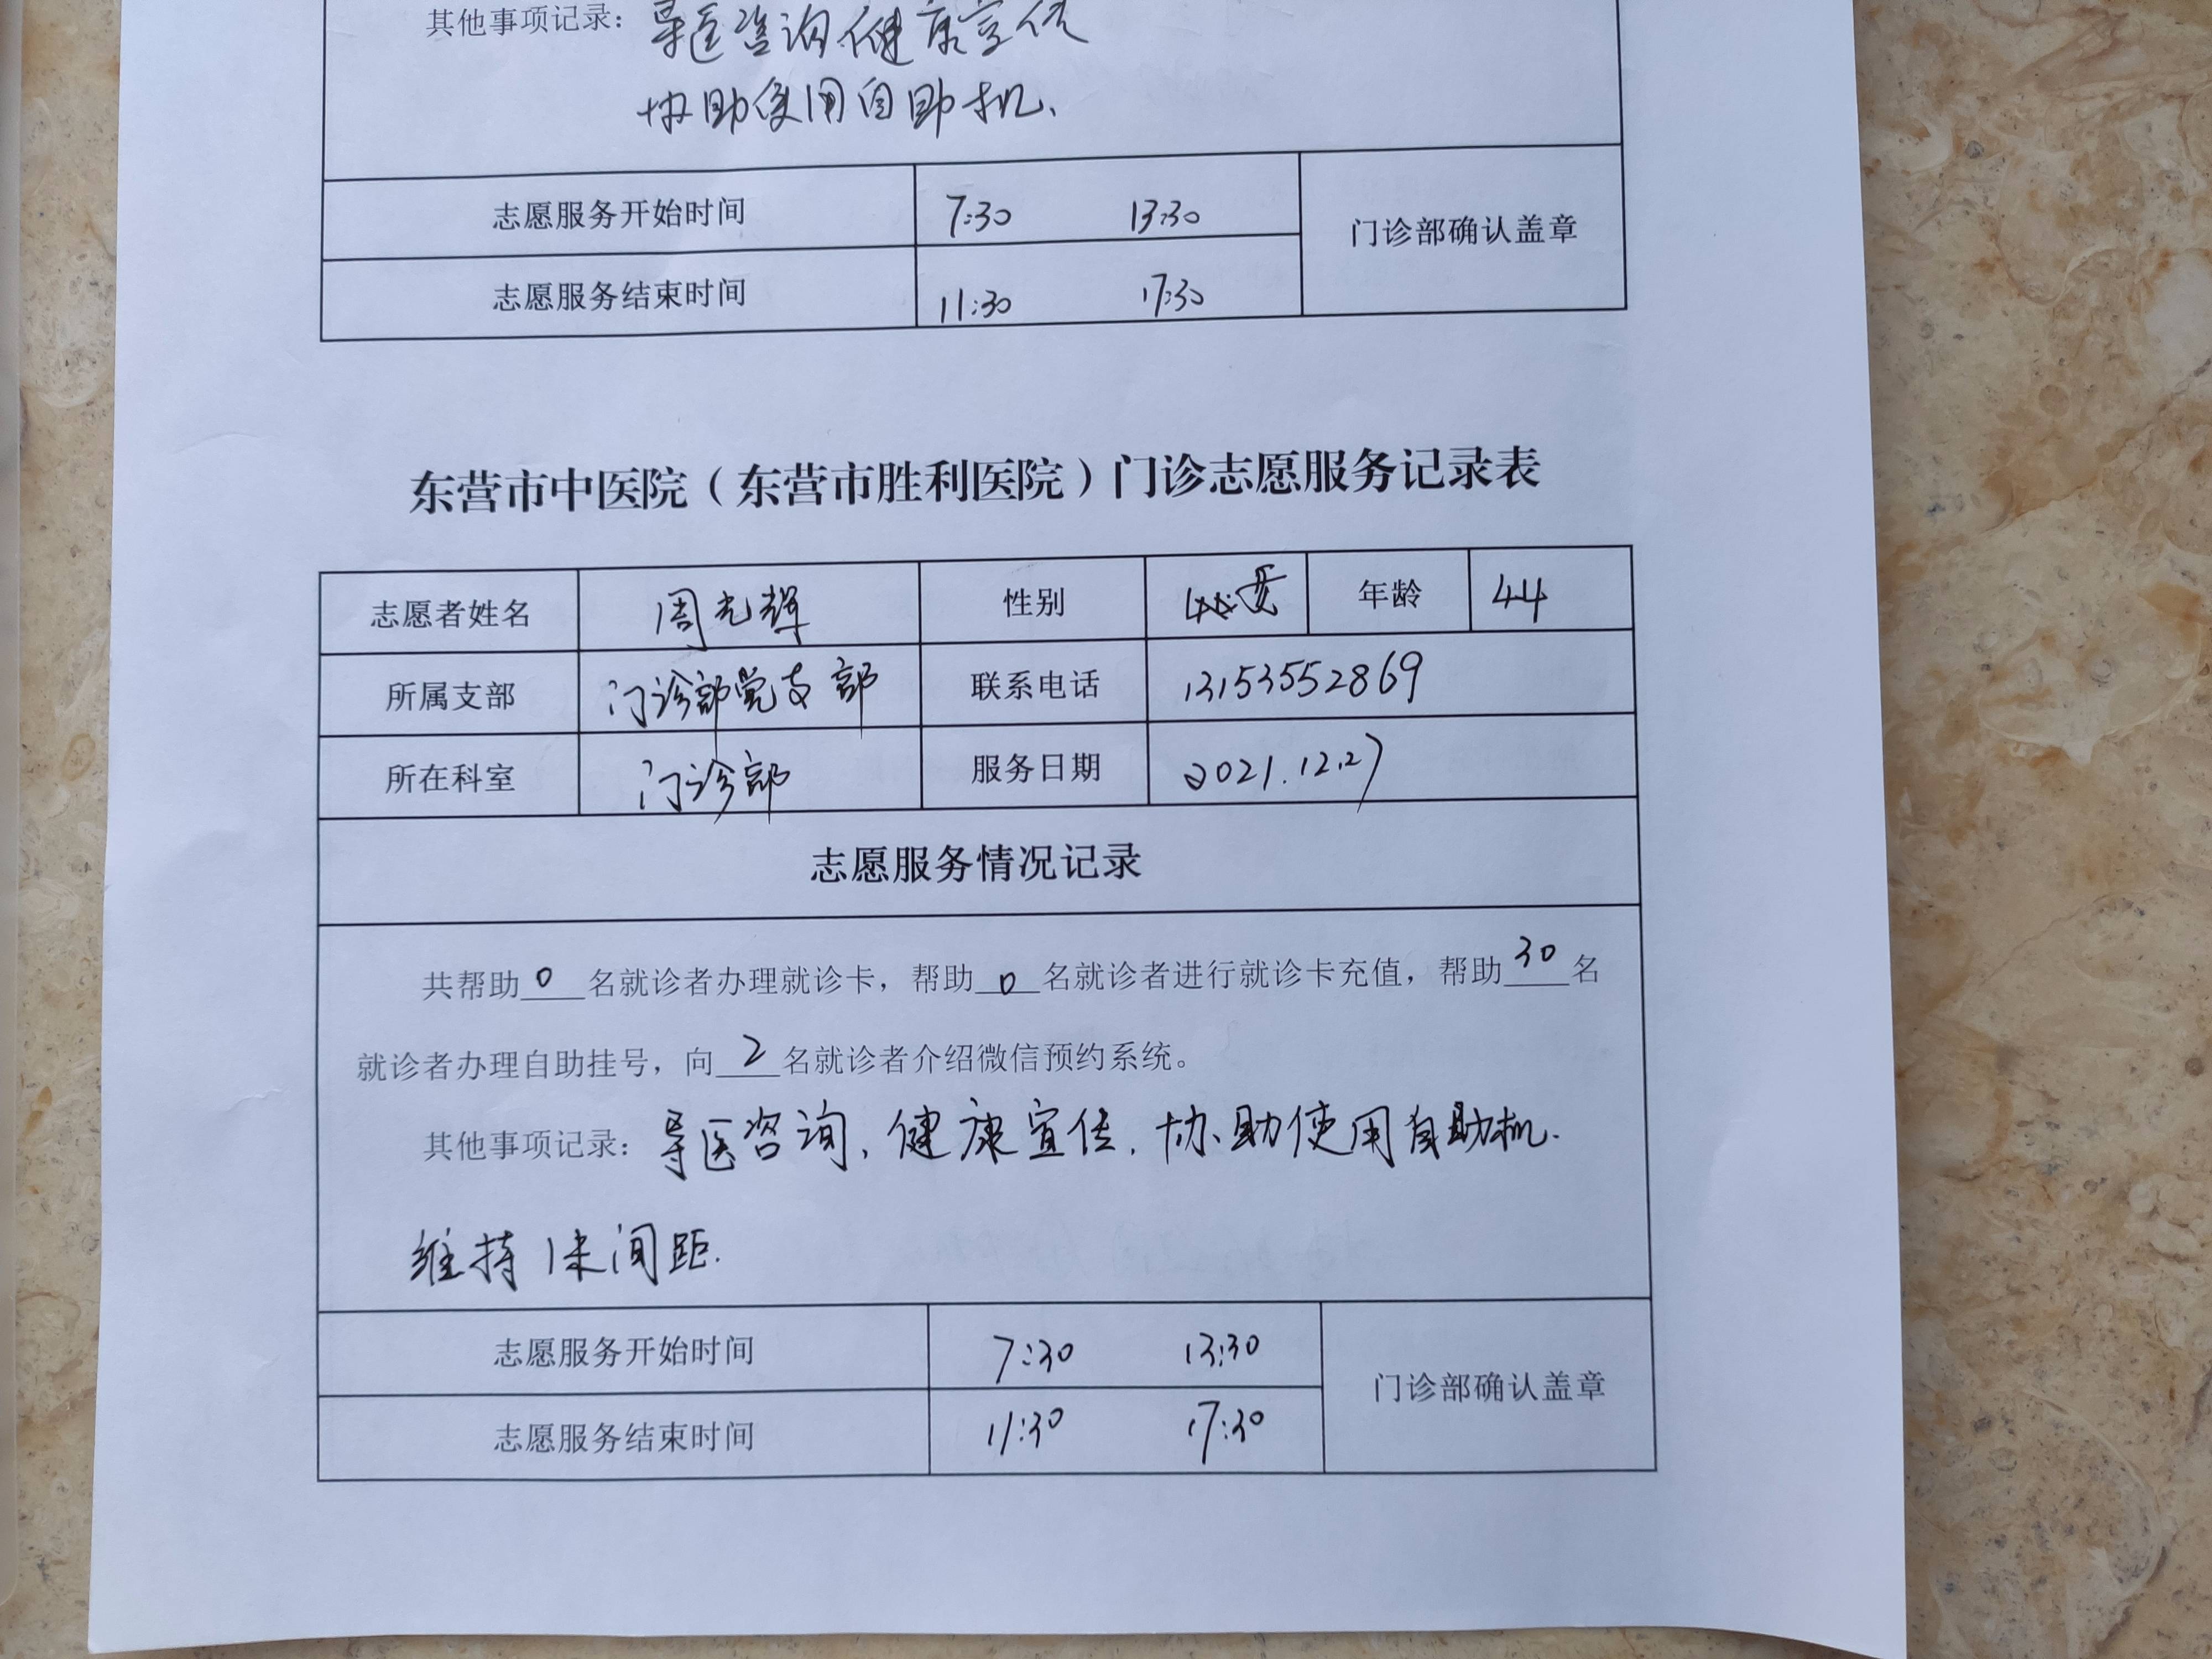 其他事项记录：导医咨询.健康宣传
协助使用自助机、
志愿服务开始时间 7:30 13:30 门诊部确认盖章
志愿服务结束时间 11:30 17:30
东营市中医院（东营市胜利医院）门诊志愿服务记录表
志愿者姓名 周光辉 性别 年龄 44
所属支部 门诊部党支部 联系电话 13153552869
所在科室 门诊部 服务日期 2021.12.27
志愿服务情况记录
共帮助 0 名就诊者办理就诊卡，帮助 0 名就诊者进行就诊卡充值，帮助 30 名
就诊者办理自助挂号，向 2 名就诊者介绍微信预约系统。
其他事项记录：导医咨询、健康宣传、协助使用自助机.
维持1米间距.
志愿服务开始时间 7:30 13:30 门诊部确认盖章
志愿服务结束时间 11:30 17:30